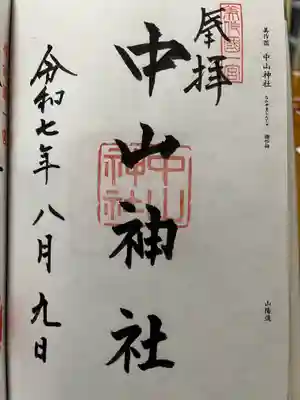 美作國 中山神社
山陽道
奉拝
美作國一宮
中山神社
中山神社
令和七年八月九日